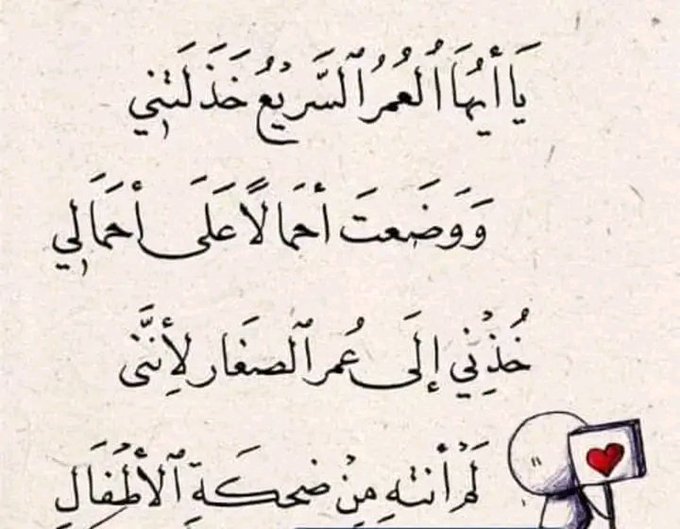 يَا أَيُّهَا الْعُمُرُ ٱلسَّرِيْعُ خَذَلْتَنِي
وَوَضَعتَ أَحْمَالًا عَلَى أَحْمَالِي
خُذْنِي إِلَى عُمرِ ٱلصغَارِ لِأَنَّنَّى
لَمْ أَنتَهِ مِنْ ضحكَةِ ٱلأَطْفَالِ